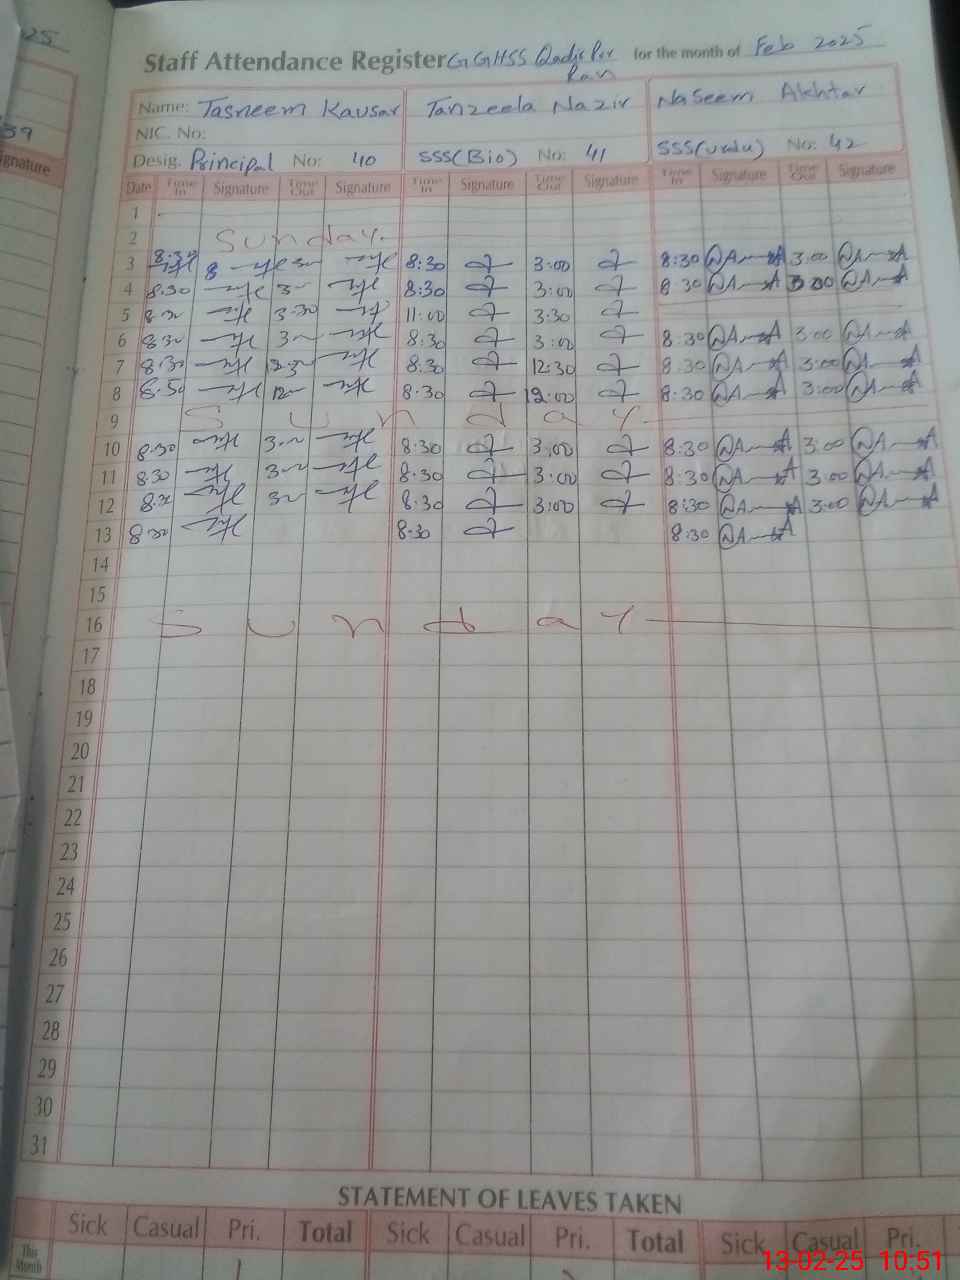 25
59
Signature
Staff Attendance Register GGHSS Qadir Pur for the month of Feb 2025
Ran
Name: Tasneem Kausar Tanzeela Nazir Naseem Akhtar
NIC. No:
Desig. Principal No: 40 SSS(Bio) No: 41 SSS(urdu) No: 42
Date Time In Signature Time Out Signature Time In Signature Time Out Signature Time In Signature Time Out Signature
1
2 Sunday.
3 8:30 8:30 3:00 8:30 3:00
4 8:30 8:30 3:00 8:30 3:00
5 3:30 11:00 3:30
6 8:30 8:30 3:00 8:30 3:00
7 8:30 12:30 8:30 12:30 8:30 3:00
8 8:30 12:00 8:30 3:00
9 Sunday
10 8:30 8:30 3:00 8:30 3:00
11 8:30 8:30 3:00 8:30 3:00
12 8:30 3:00 8:30 3:00
13 8:30 8:30 8:30
14
15
16 Sunday
17
18
19
20
21
22
23
24
25
26
27
28
29
30
31
STATEMENT OF LEAVES TAKEN
Sick Casual Pri. Total Sick Casual Pri. Total Sick Casual Pri.
This Month
13-02-25 10:51